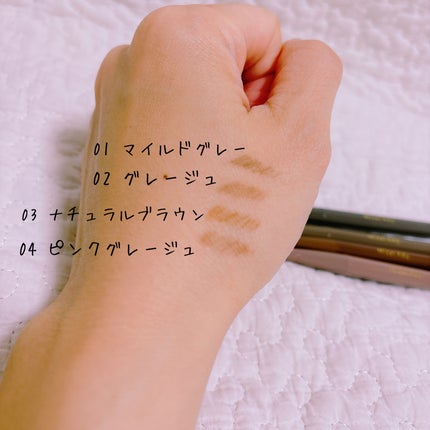 01 マイルドグレー
02 グレージュ
03 ナチュラルブラウン
04 ピンクグレージュ